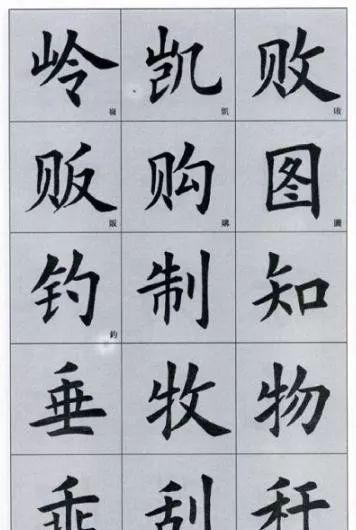 岭嶺 凯凱 败敗
贩販 购購 图圖
钓釣 制 知
垂 牧 物
刮